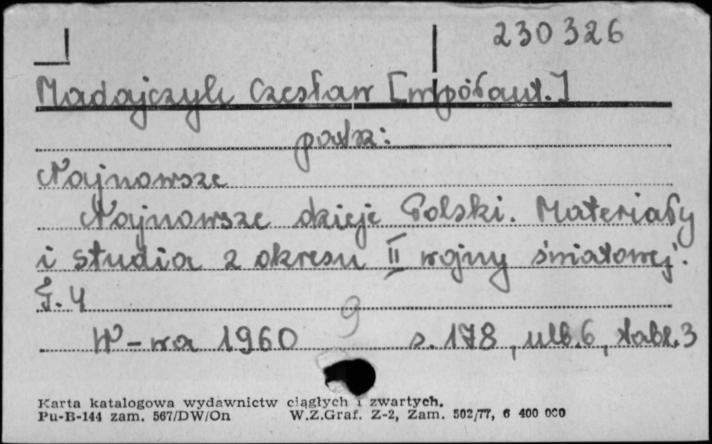 230326
Madajczyk Czesław [współaut.]
patrz:
Najnowsze
Najnowsze dzieje Polski. Materiały
i studia z okresu II wojny światowej.
T. 4
W-wa 1960 s. 178, ulb. 6, tabl. 3
9
Karta katalogowa wydawnictw ciągłych i zwartych.
Pu-B-144 zam. 567/DW/On W.Z.Graf. Z-2, Zam. 502/77, 6 400 000